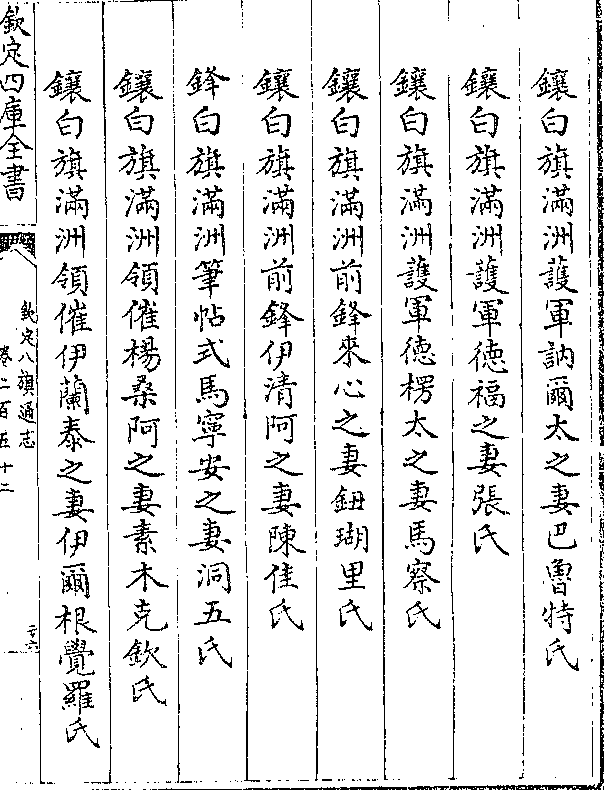 鑲白旗滿洲護軍訥爾太之妻巴魯特氏
鑲白旗滿洲護軍德福之妻張氏
鑲白旗滿洲護軍德楞太之妻馬察氏
鑲白旗滿洲前鋒來心之妻鈕瑚里氏
鑲白旗滿洲前鋒伊清阿之妻陳佳氏
鋒白旗滿洲筆帖式馬寧安之妻洞五氏
鑲白旗滿洲領催楊桑阿之妻素木克欽氏
鑲白旗滿洲領催伊蘭泰之妻伊爾根覺羅氏
欽定四庫全書
欽定八旗通志
卷二百五十二
二六